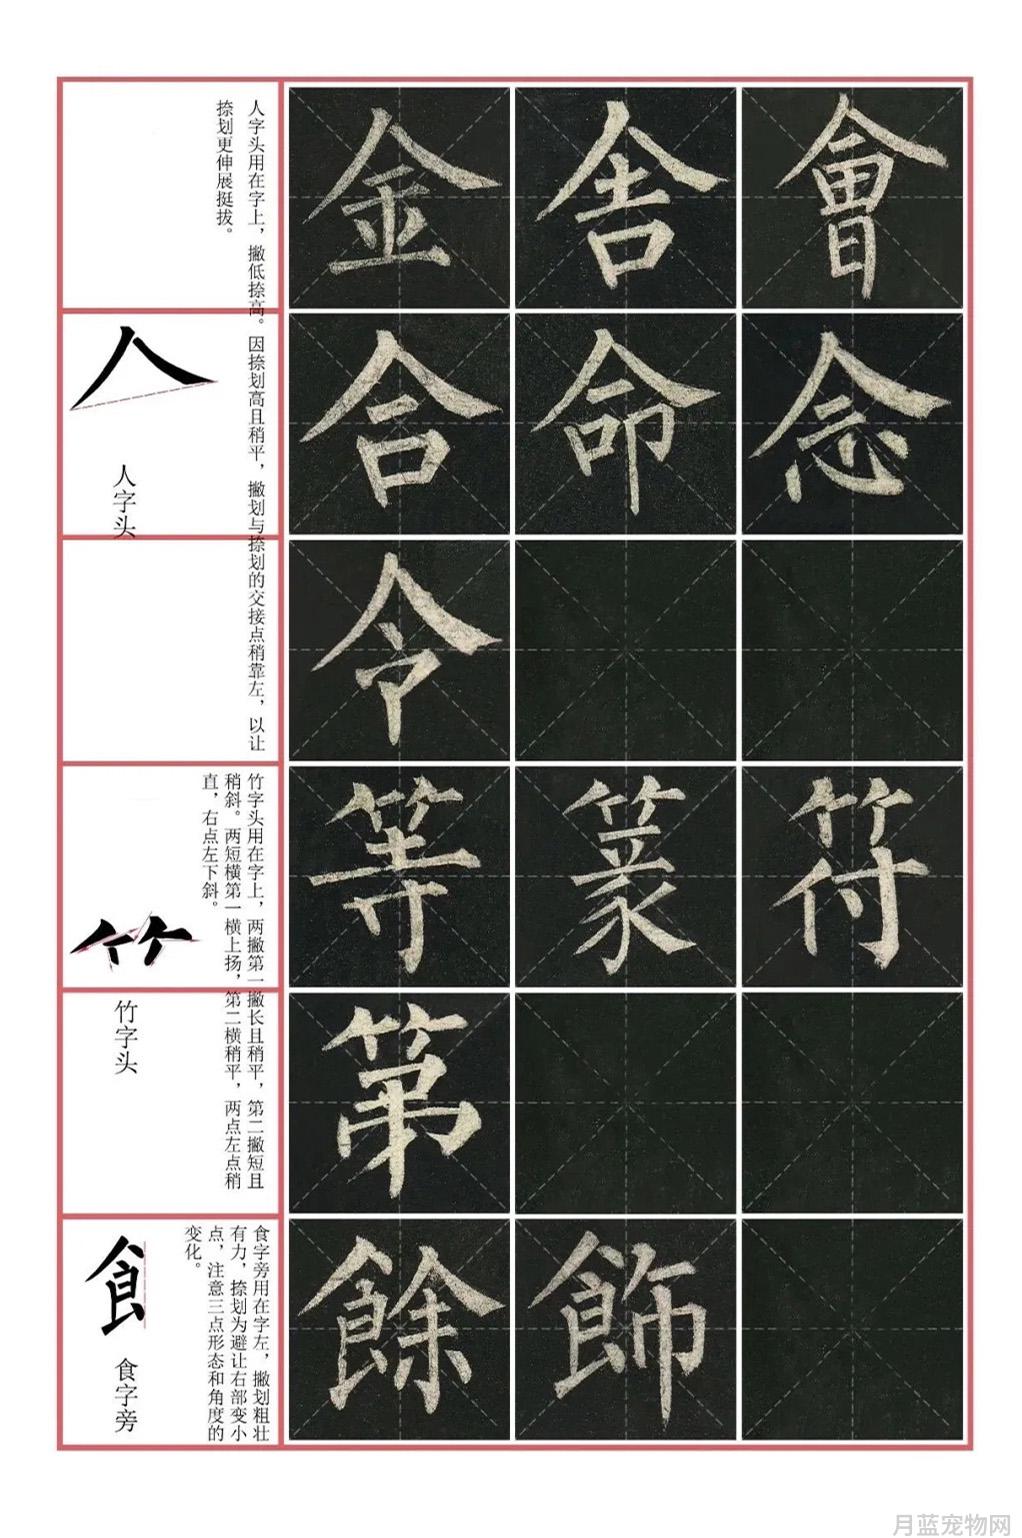 人字头用在字上，撇低捺高。因捺划高且稍平，撇划与捺划的交接点稍靠左，以让
捺划更伸展挺拔。
人
人字头
金舍會
合命念
令
竹字头用在字上，两撇第一撇长且稍平，第二撇短且
稍斜。两短横第一横上扬，第二横稍平，两点左点稍
直，右点左下斜。
竹字头
等篆符
第
食字旁用在字左，撇划粗壮
有力，捺划为避让右部变小
点，注意三点形态和角度的
变化。
飠
食字旁
餘飾
月蓝宠物网